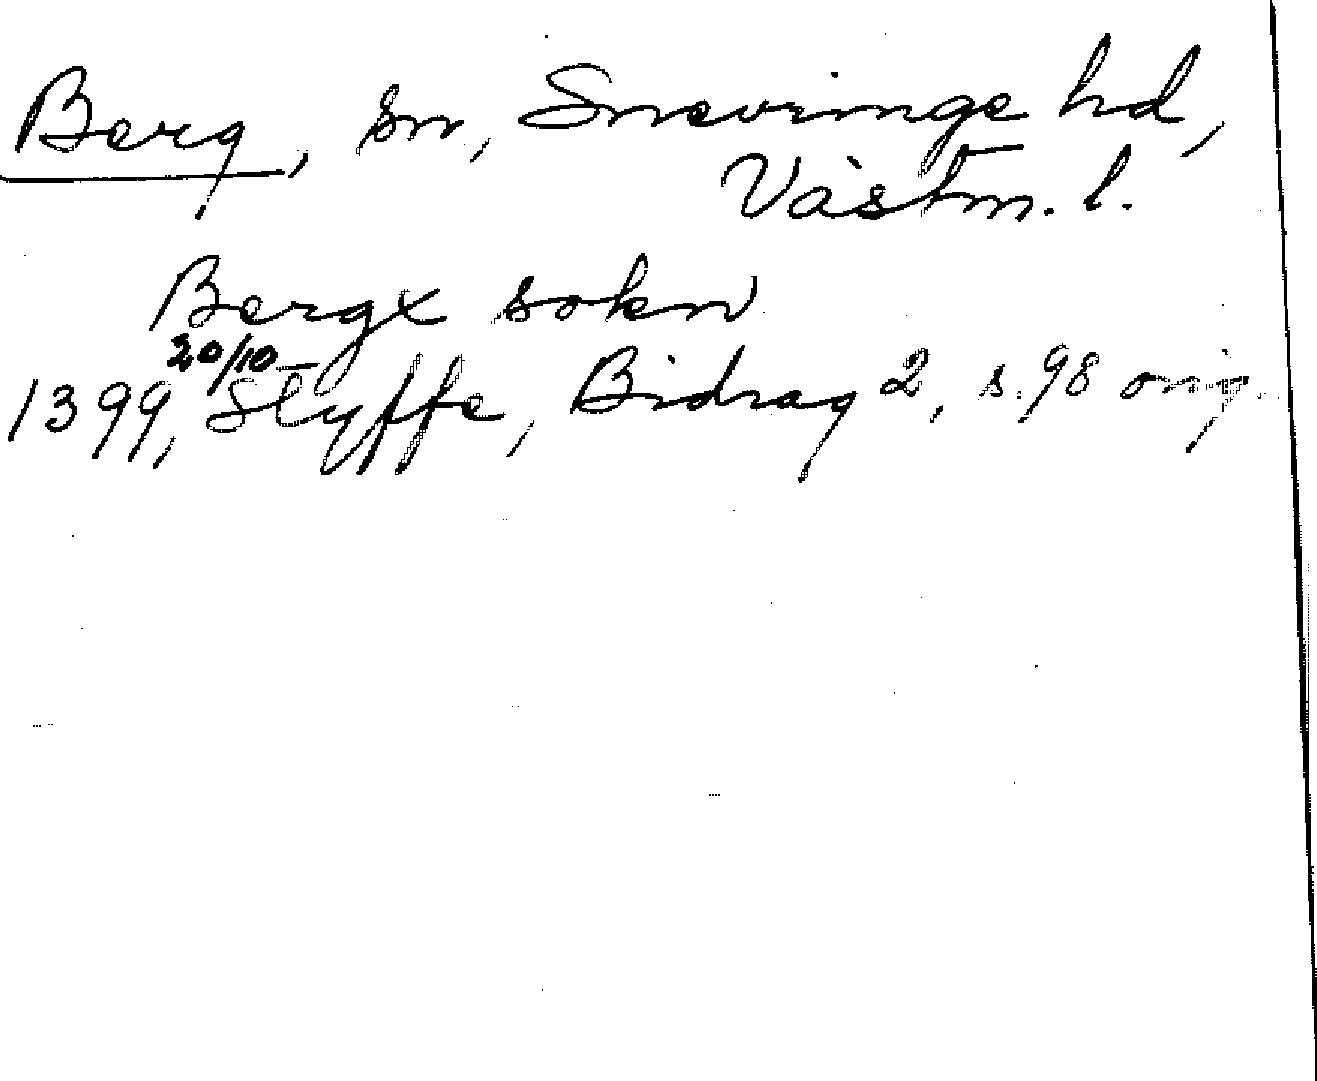 Berg, sn, Snevringe hd,
Västm. l.
Bergx sokn
1399, 20/10 Styffe, Bidrag 2, s. 98 orig.